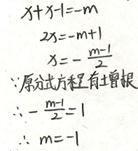 x+x-1=-m
2x=-m+1
x=-\frac{m-1}{2}
∵原分式方程有增根
∴-\frac{m-1}{2}=1
∴ m=-1